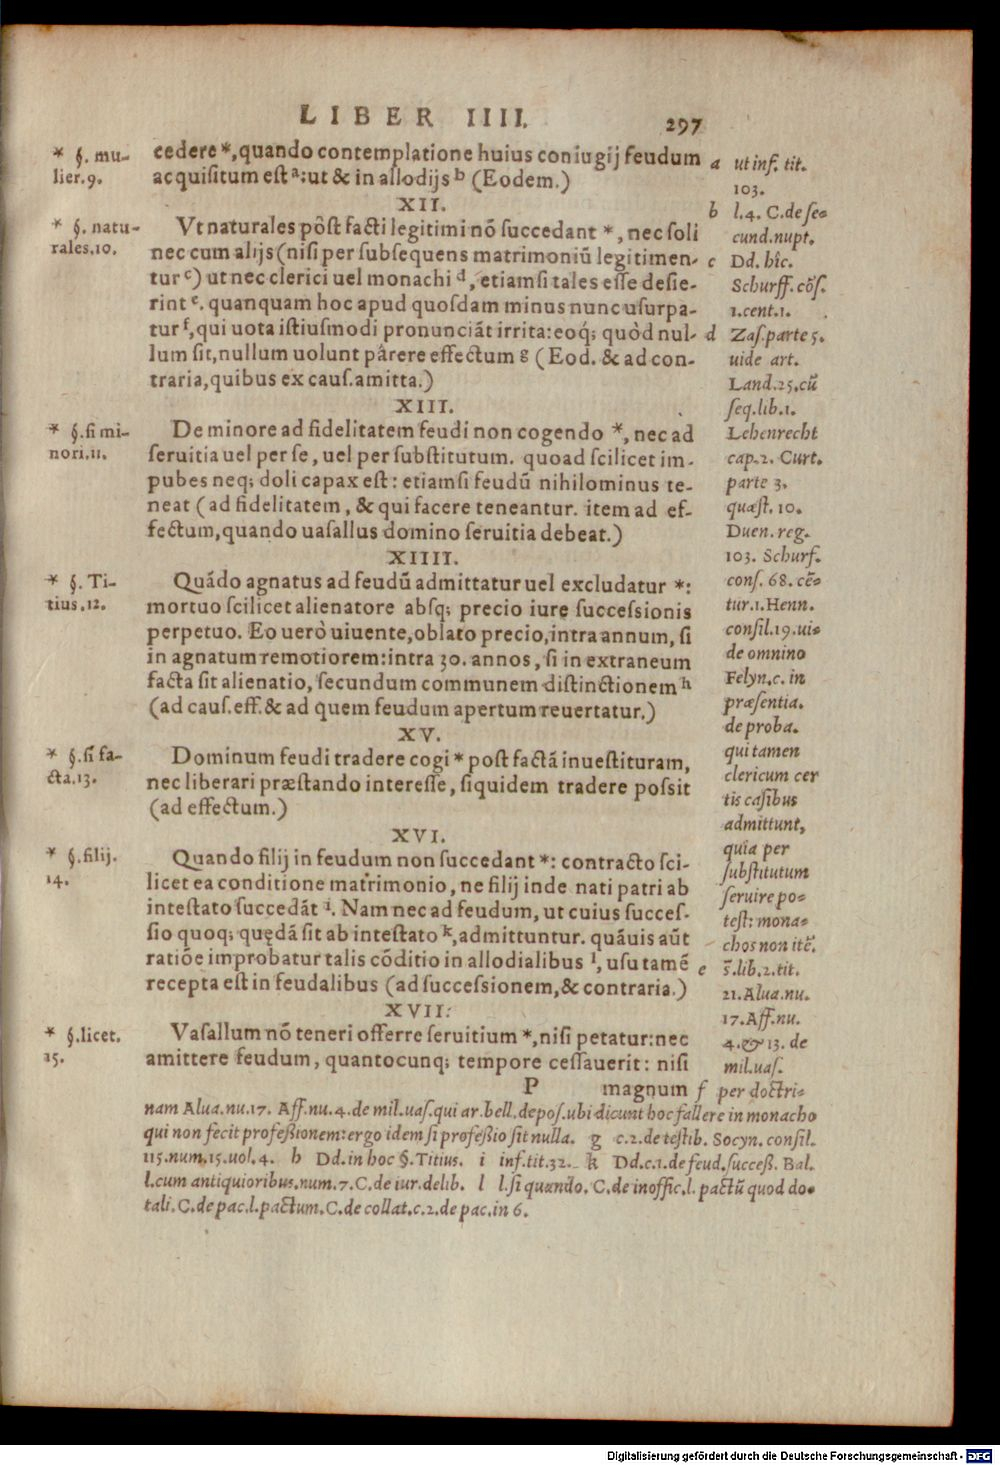 LIBER IIII. 297
cedere *, quando contemplatione huius coniugij feudum
acquisitum est ᵃ: ut & in allodijs ᵇ (Eodem.)
XII.
Vt naturales pòst facti legitimi nō succedant *, nec soli
nec cum alijs (nisi per subsequens matrimoniū legitimen-
tur ᶜ) ut nec clerici uel monachi ᵈ, etiamsi tales esse desie-
rint ᵉ. quanquam hoc apud quosdam minus nunc usurpa-
tur ᶠ, qui uota istiusmodi pronunciāt irrita: eoq́; quòd nul-
lum sit, nullum uolunt pârere effectum ᵍ (Eod. & ad con-
traria, quibus ex caus. amitta.)
XIII.
De minore ad fidelitatem feudi non cogendo *, nec ad
seruitia uel per se, uel per substitutum. quoad scilicet im-
pubes neq; doli capax est: etiamsi feudū nihilominus te-
neat (ad fidelitatem, & qui facere teneantur. item ad ef-
fectum, quando uasallus domino seruitia debeat.)
XIIII.
Quādo agnatus ad feudū admittatur uel excludatur *:
mortuo scilicet alienatore absq; precio iure successionis
perpetuo. Eo uerò uiuente, oblato precio, intra annum, si
in agnatum remotiorem: intra 30. annos, si in extraneum
facta sit alienatio, secundum communem distinctionem ʰ
(ad caus. eff. & ad quem feudum apertum reuertatur.)
XV.
Dominum feudi tradere cogi * post factā inuestituram,
nec liberari præstando interesse, siquidem tradere possit
(ad effectum.)
XVI.
Quando filij in feudum non succedant *: contracto sci-
licet ea conditione matrimonio, ne filij inde nati patri ab
intestato succedāt ⁱ. Nam nec ad feudum, ut cuius succes-
sio quoq; quędā sit ab intestato ᵏ, admittuntur. quāuis aūt
ratiōe improbatur talis cōditio in allodialibus ˡ, usu tamē
recepta est in feudalibus (ad successionem, & contraria.)
XVII.
Vasallum nō teneri offerre seruitium *, nisi petatur: nec
amittere feudum, quantocunq; tempore cessauerit: nisi
P magnum
* §. mu-
lier. 9.
* §. natu-
rales. 10.
* §. si mi-
nori. 11.
* §. Ti-
tius. 12.
* §. si fa-
cta. 13.
* §. filij.
14.
* §. licet.
15.
a ut inf. tit.
103.
b l. 4. C. de se-
cund. nupt.
c Dd. hîc.
Schurff. cōs.
1. cent. 1.
d Zas. parte 5.
uide art.
Land. 25. cū
seq. lib. 1.
Lehenrecht
cap. 2. Curt.
parte 3.
quæst. 10.
Duen. reg.
103. Schurf.
cons. 68. cē-
tur. 1. Henn.
consil. 19. ui-
de omnino
Felyn. c. in
præsentia.
de proba.
qui tamen
clericum cer
tis casibus
admittunt,
quia per
substitutum
seruire po-
test: mona-
chos non itē.
e s̄. lib. 2. tit.
21. Alua. nu.
17. Aff. nu.
4. & 13. de
mil. uas.
f per doctri-
nam Alua. nu. 17. Aff. nu. 4. de mil. uas. qui ar. bell. depos. ubi dicunt hoc fallere in monacho
qui non fecit professionem: ergo idem si professio sit nulla. g c. 2. de testib. Socyn. consil.
115. num. 15. uol. 4. h Dd. in hoc §. Titius. i inf. tit. 32. k Dd. c. 1. de feud. success. Bal.
l. cum antiquioribus. num. 7. C. de iur. delib. l l. si quando. C. de inoffic. l. pactū quod do-
tali. C. de pac. l. pactum. C. de collat. c. 2. de pac. in 6.
Digitalisierung gefördert durch die Deutsche Forschungsgemeinschaft - DFG